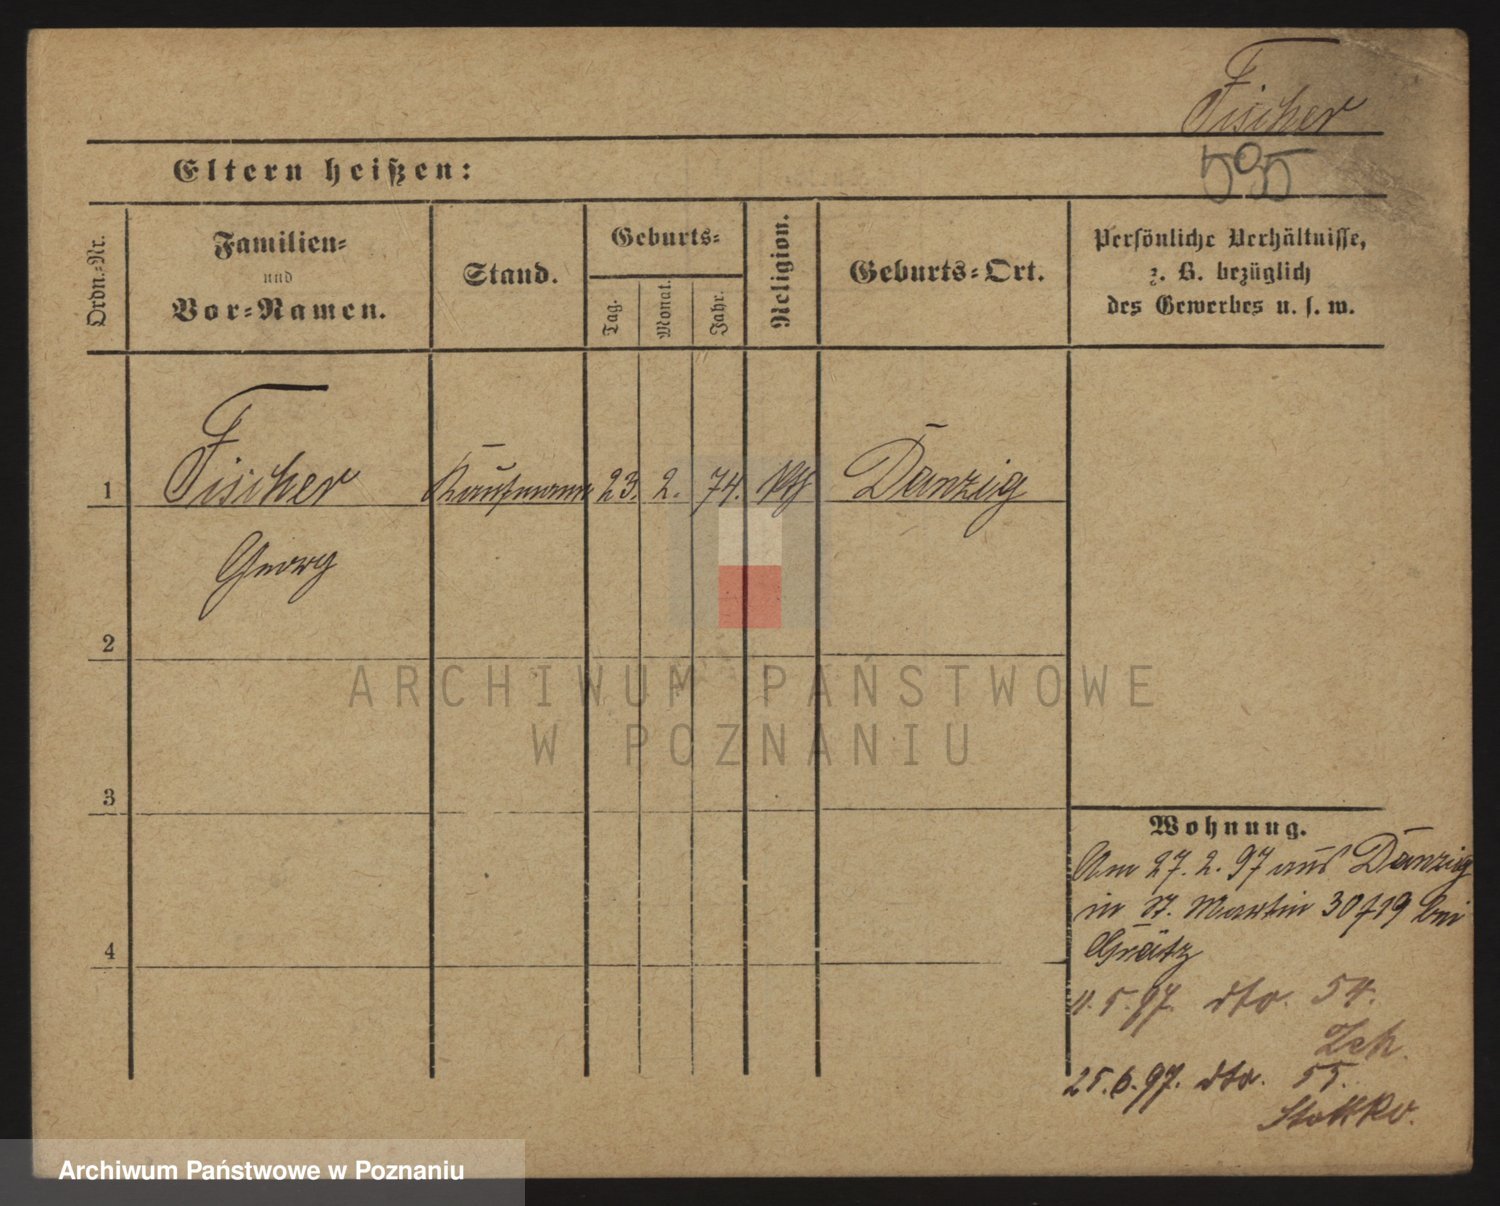 Fischer
595
Eltern heißen:
Ordn.=Nr.
Familien=
und
Vor=Namen.
Stand.
Geburts=
Tag.
Monat.
Jahr.
Religion.
Geburts=Ort.
Persönliche Verhältnisse,
z. B. bezüglich
des Gewerbes u. s. w.
1 Fischer Kaufmann 23. 2. 74. Danzig
Georg
2
3
4
ARCHIWUM PAŃSTWOWE
W POZNANIU
Wohnung.
Am 27. 2. 97 aus Danzig
in St. Martin bei
Grätz
11. 5. 97. dto. 54.
25. 6. 97. dto. 55.
Archiwum Państwowe w Poznaniu